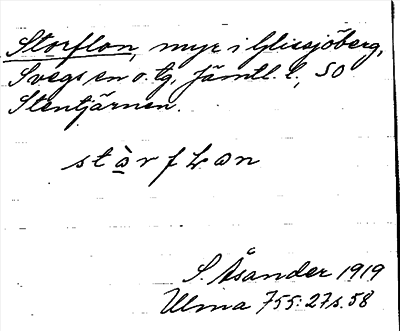 Storflon, myr i Glissjöberg,
Svegs sn o. tg, Jämtl. l., SO
Stentjärnen.
stòrfLɷn
S. Åsander 1919
Ulma 755:27 s. 58